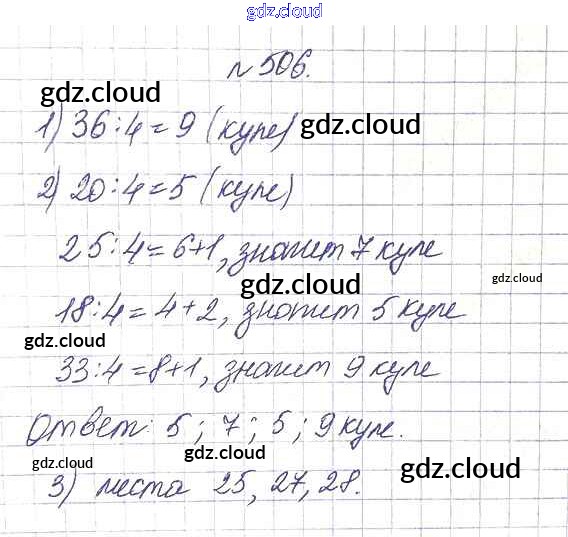 gdz.cloud
№ 506.
gdz.cloud
1) 36:4=9 (купе) gdz.cloud
2) 20:4=5 (купе)
25:4=6+1, значит 7 купе
gdz.cloud gdz.cloud
18:4=4+2, значит 5 купе
gdz.cloud
33:4=8+1, значит 9 купе
Ответ: 5; 7; 5; 9 купе.
gdz.cloud gdz.cloud gdz.cloud
3) места 25, 27, 28.